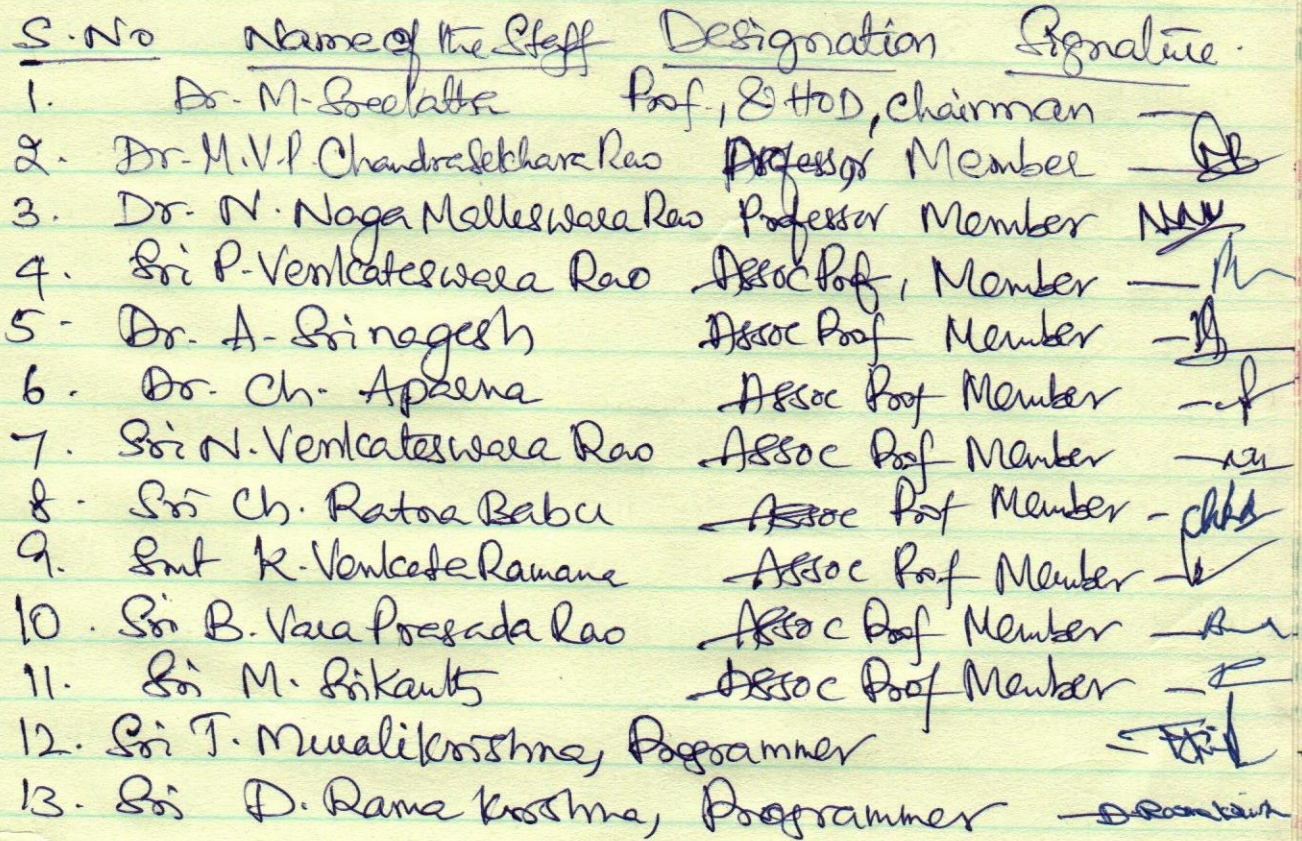 S.No Name of the Staff Designation Signature.
1. Dr. M. Sreelatha Prof., & HOD, Chairman
2. Dr. M.V.P. Chandrasekhara Rao Professor Member
3. Dr. N. Naga Malleswara Rao Professor Member
4. Sri P. Venkateswara Rao Assoc Prof, Member
5. Dr. A. Srinagesh Assoc Prof Member
6. Dr. Ch. Aparna Assoc Prof Member
7. Sri N. Venkateswara Rao Assoc Prof Member
8. Sri Ch. Ratna Babu Assoc Prof Member
9. Smt K. Venkata Ramana Assoc Prof Member
10. Sri B. Vara Prasada Rao Assoc Prof Member
11. Sri M. Srikanth Assoc Prof Member
12. Sri T. Muralikrishna, Programmer
13. Sri D. Rama Krishna, Programmer D. Ramakrishna